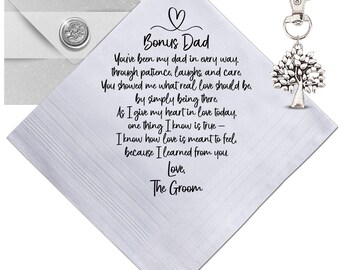 Bonus Dad
You've been my dad in every way,
through patience, laughs, and care.
You showed me what real love should be,
by simply being there.
As I give my heart in love today,
one thing I know is true –
I know how love is meant to feel,
because I learned from you.
Love,
The Groom